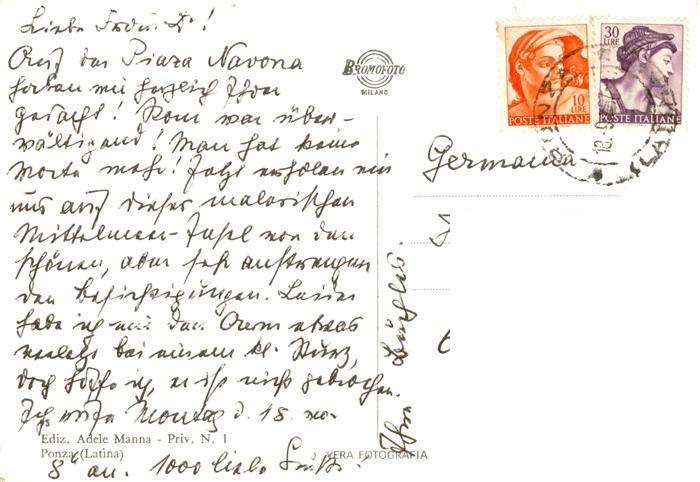 Liebe Frau D!
Auf der Piaza Navona
haben wir herzlich Ihrer
gedacht! Rom war über-
wältigend! Man hat keine
Worte mehr! Jetzt erholen wir
uns auf dieser malerischen
Mittelmeer-Insel von den
schönen, aber sehr anstrengen
den Besichtigungen. Leider
habe ich mir den Arm etwas
verletzt bei einem kl. Sturz,
doch hoffe ich, er ist nicht gebrochen.
Ich rufe Montag d. 18.
8h an. 1000 liebe Grüße!
Ihre
BROMOFOTO
MILANO
10
LIRE
POSTE ITALIANE
30
LIRE
POSTE ITALIANE
Germania
Ediz. Adele Manna - Priv. N. 1
Ponza (Latina)
VERA FOTOGRAFIA